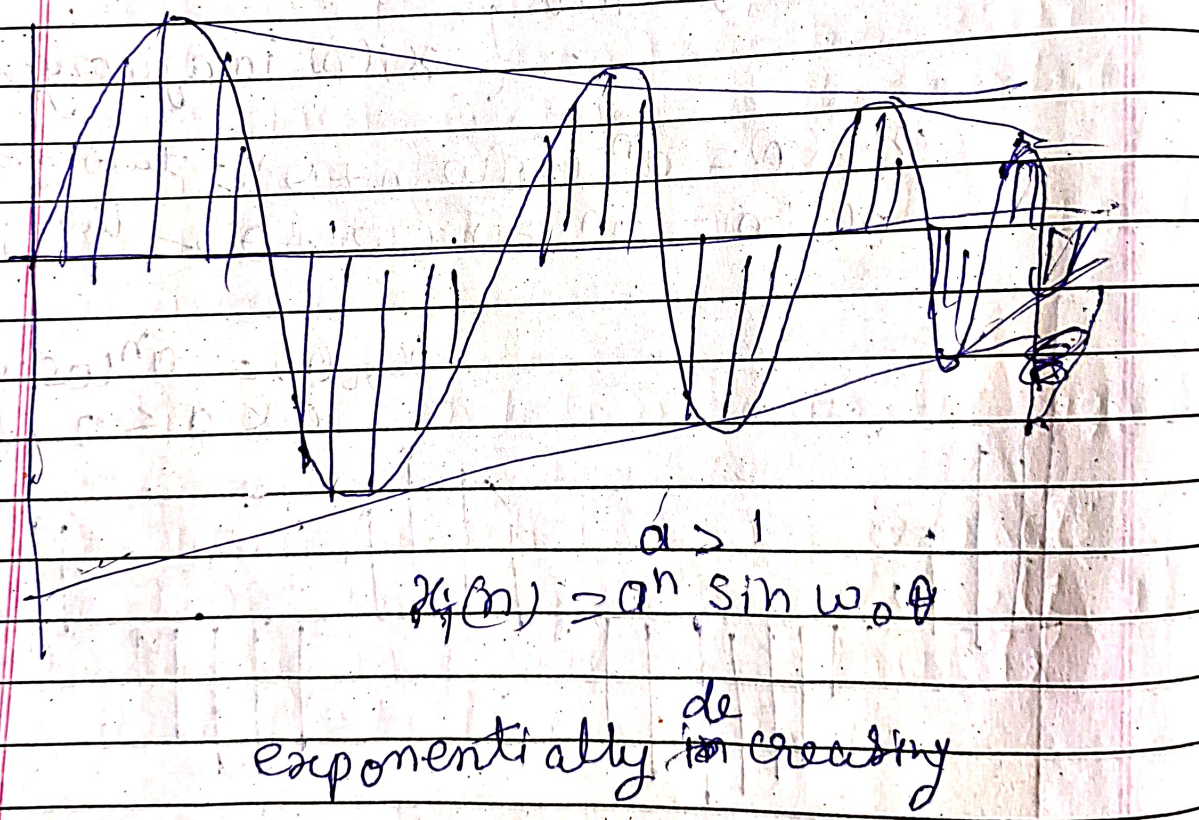 a > 1
xᵢ(n) = aⁿ sin ω₀θ
exponentially decreasing